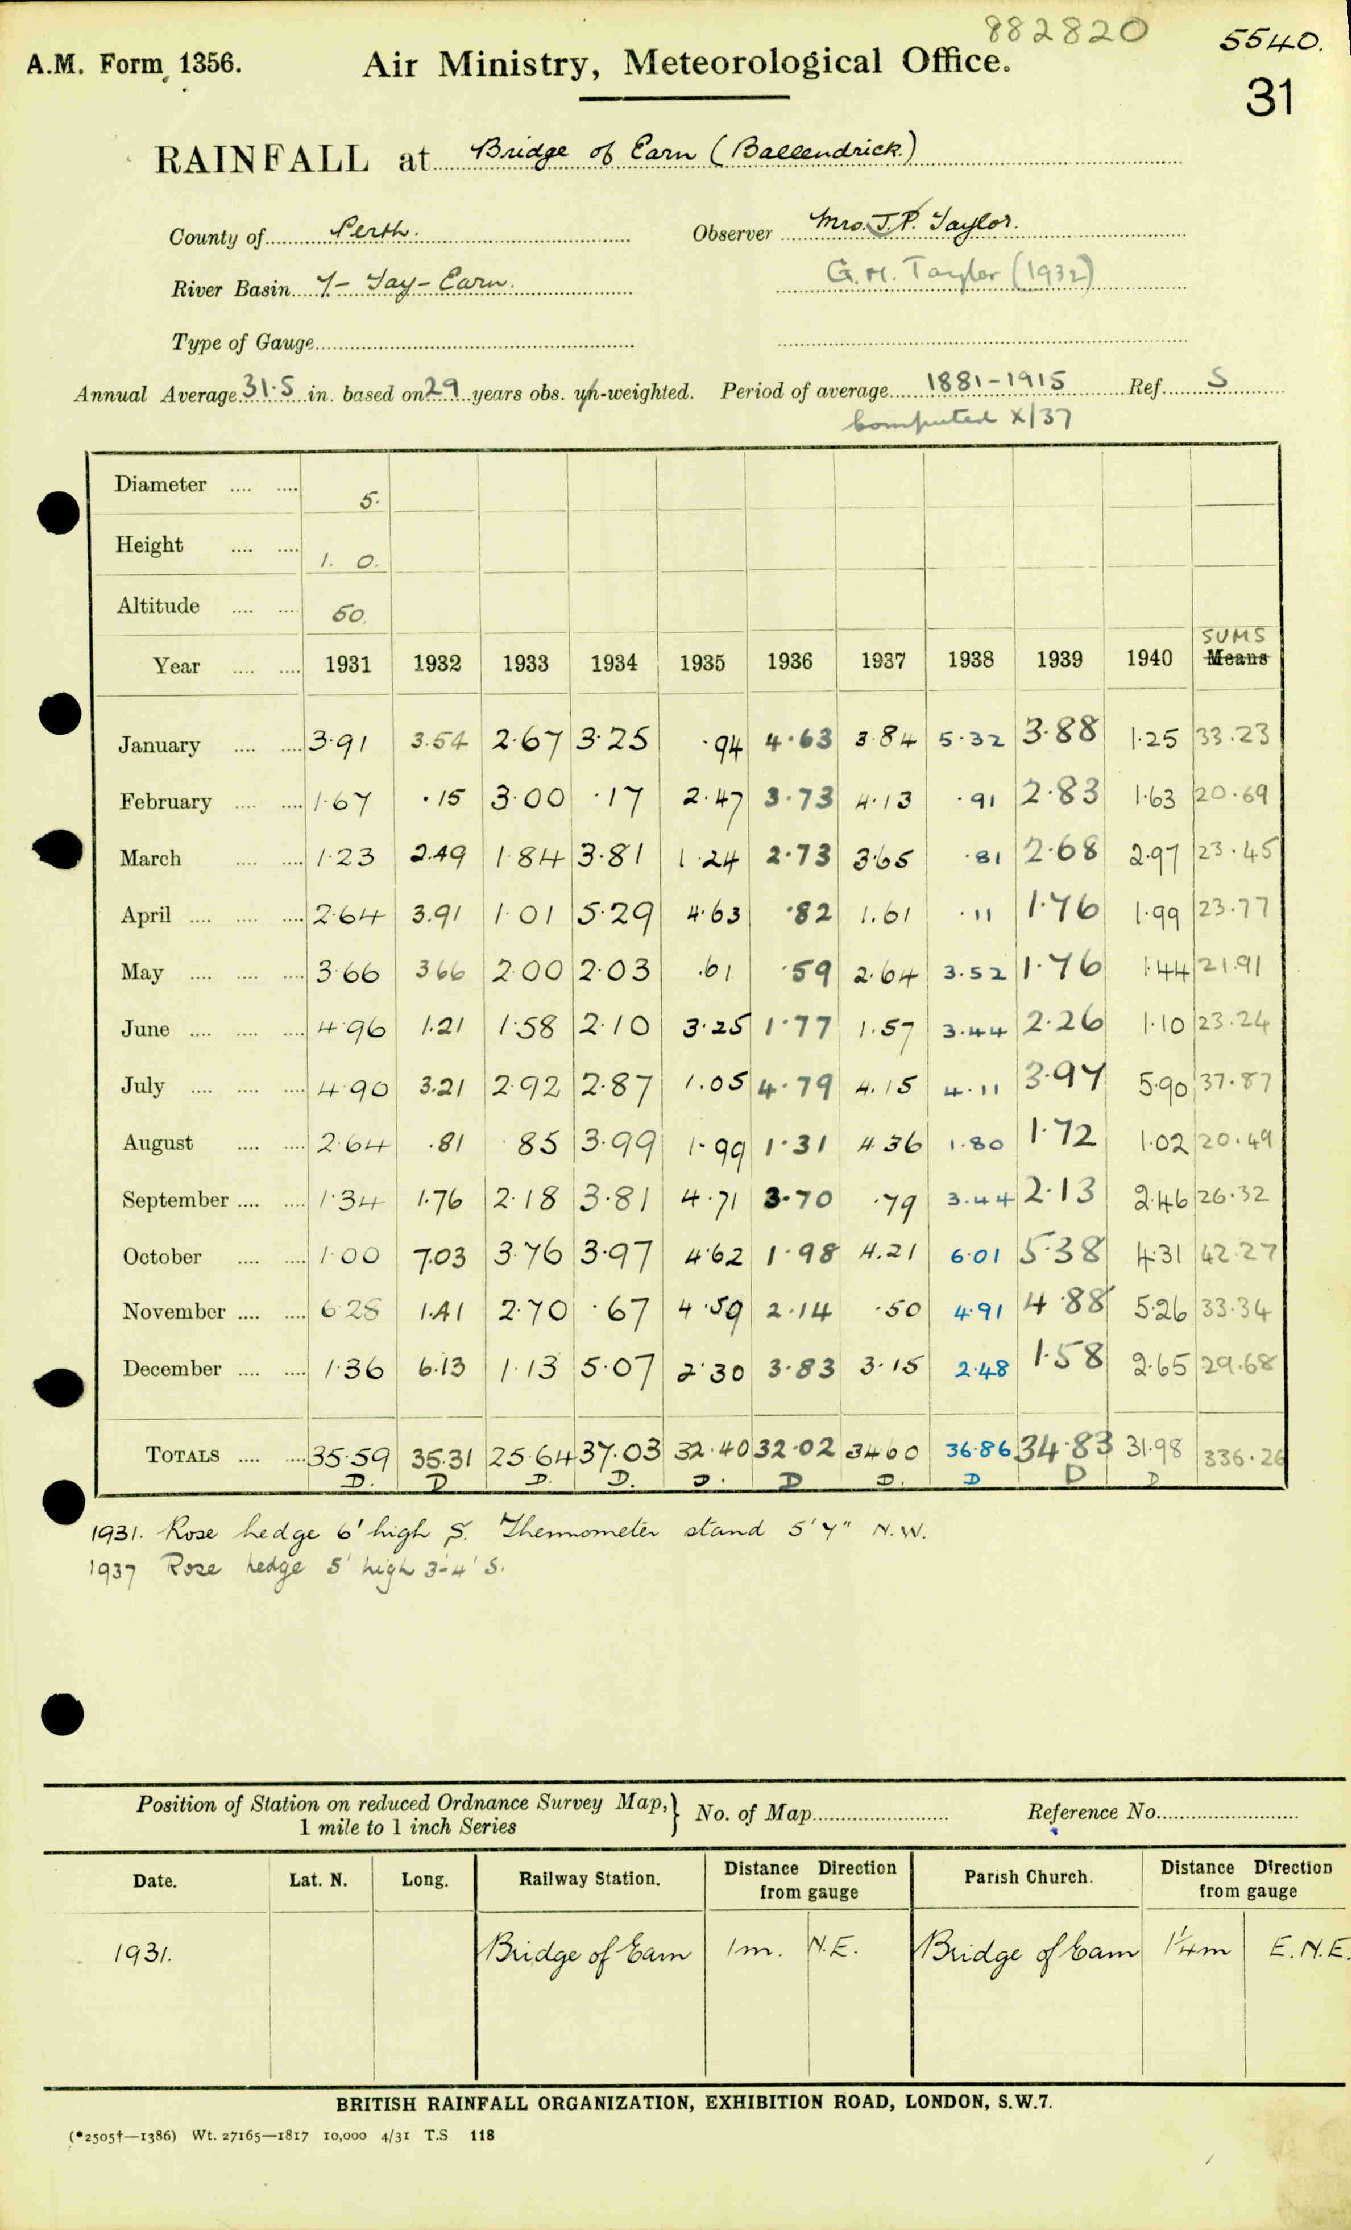 882820
5540.
A.M. Form 1356.
Air Ministry, Meteorological Office.
31
RAINFALL at Bridge of Earn (Ballendrick)
County of Perth.
Observer Mrs. J.P. Taylor.
River Basin Y- Tay- Earn.
G.H. Taylor (1932)
Type of Gauge
Annual Average 31.5 in. based on 29 years obs. un-weighted. Period of average 1881-1915 Ref. S
Computed X/37
Diameter .... .... 5.
Height .... .... 1. 0.
Altitude .... .... 50.
SUMS
Year .... .... 1931 1932 1933 1934 1935 1936 1937 1938 1939 1940 Means
January .... .... 3.91 3.54 2.67 3.25 .94 4.63 3.84 5.32 3.88 1.25 33.23
February .... .... 1.67 .15 3.00 .17 2.47 3.73 4.13 .91 2.83 1.63 20.69
March .... .... 1.23 2.49 1.84 3.81 1.24 2.73 3.65 .81 2.68 2.97 23.45
April .... .... .... 2.64 3.91 1.01 5.29 4.63 .82 1.61 .11 1.76 1.99 23.77
May .... .... .... 3.66 3.66 2.00 2.03 .61 .59 2.64 3.52 1.76 1.44 21.91
June .... .... .... 4.96 1.21 1.58 2.10 3.25 1.77 1.57 3.44 2.26 1.10 23.24
July .... .... .... 4.90 3.21 2.92 2.87 1.05 4.79 4.15 4.11 3.97 5.90 37.87
August .... .... 2.64 .81 .85 3.99 1.99 1.31 4.36 1.80 1.72 1.02 20.49
September .... .... 1.34 1.76 2.18 3.81 4.71 3.70 .79 3.44 2.13 2.46 26.32
October .... .... 1.00 7.03 3.76 3.97 4.62 1.98 4.21 6.01 5.38 4.31 42.27
November .... .... 6.28 1.41 2.70 .67 4.59 2.14 .50 4.91 4.88 5.26 33.34
December .... .... 1.36 6.13 1.13 5.07 2.30 3.83 3.15 2.48 1.58 2.65 29.68
TOTALS .... .... 35.59 35.31 25.64 37.03 32.40 32.02 34.60 36.86 34.83 31.98 336.26
D. D D. D. D. D D. D D D
1931. Rose hedge 6' high S. Thermometer stand 5'7" N.W.
1937 Rose hedge 5' high 3'-4' S.
Position of Station on reduced Ordnance Survey Map,} No. of Map Reference No.
1 mile to 1 inch Series
Date. Lat. N. Long. Railway Station. Distance Direction from gauge Parish Church. Distance Direction from gauge
1931. Bridge of Earn 1m. N.E. Bridge of Earn 1¼m E.N.E.
BRITISH RAINFALL ORGANIZATION, EXHIBITION ROAD, LONDON, S.W.7.
(*2505†—1386) Wt. 27165—1817 10,000 4/31 T.S 118